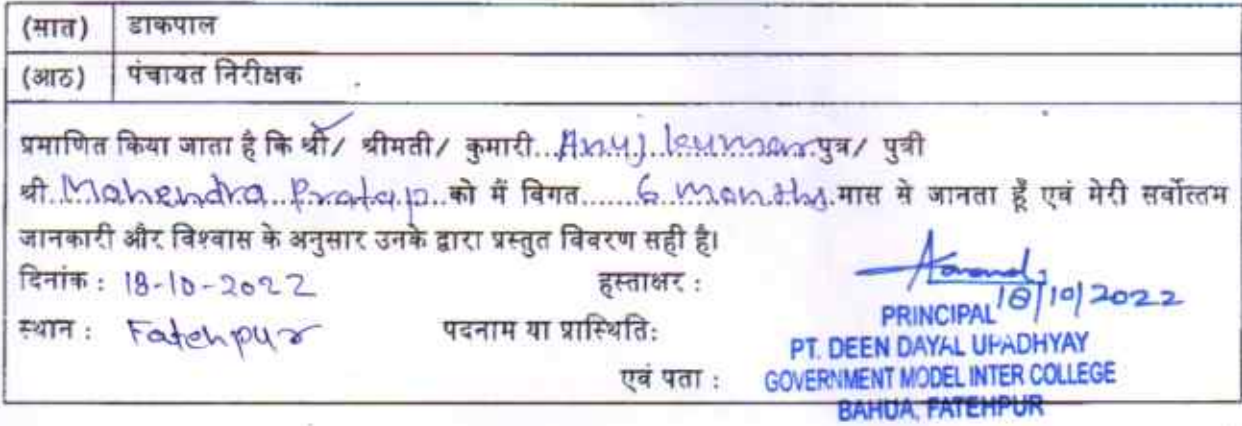 (सात) डाकपाल
(आठ) पंचायत निरीक्षक
प्रमाणित किया जाता है कि श्री/ श्रीमती/ कुमारी...Anuj kumar पुत्र/ पुत्री
श्री..Mahendra..Pratap..को मैं विगत......6 months.मास से जानता हूँ एवं मेरी सर्वोत्तम
जानकारी और विश्वास के अनुसार उनके द्वारा प्रस्तुत विवरण सही है।
दिनांक : 18-10-2022 हस्ताक्षर : Anand
18/10/2022
स्थान : Fatehpur पदनाम या प्रास्थिति: PRINCIPAL
PT. DEEN DAYAL UPADHYAY
एवं पता : GOVERNMENT MODEL INTER COLLEGE
BAHUA, FATEHPUR